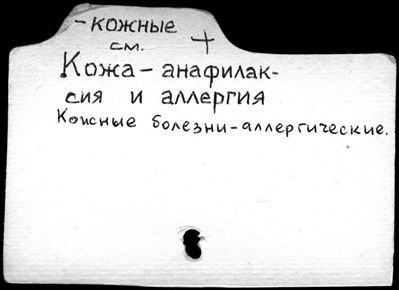 -кожные
см. +
Кожа - анафилак-
сия и аллергия
Кожные болезни-аллергические.